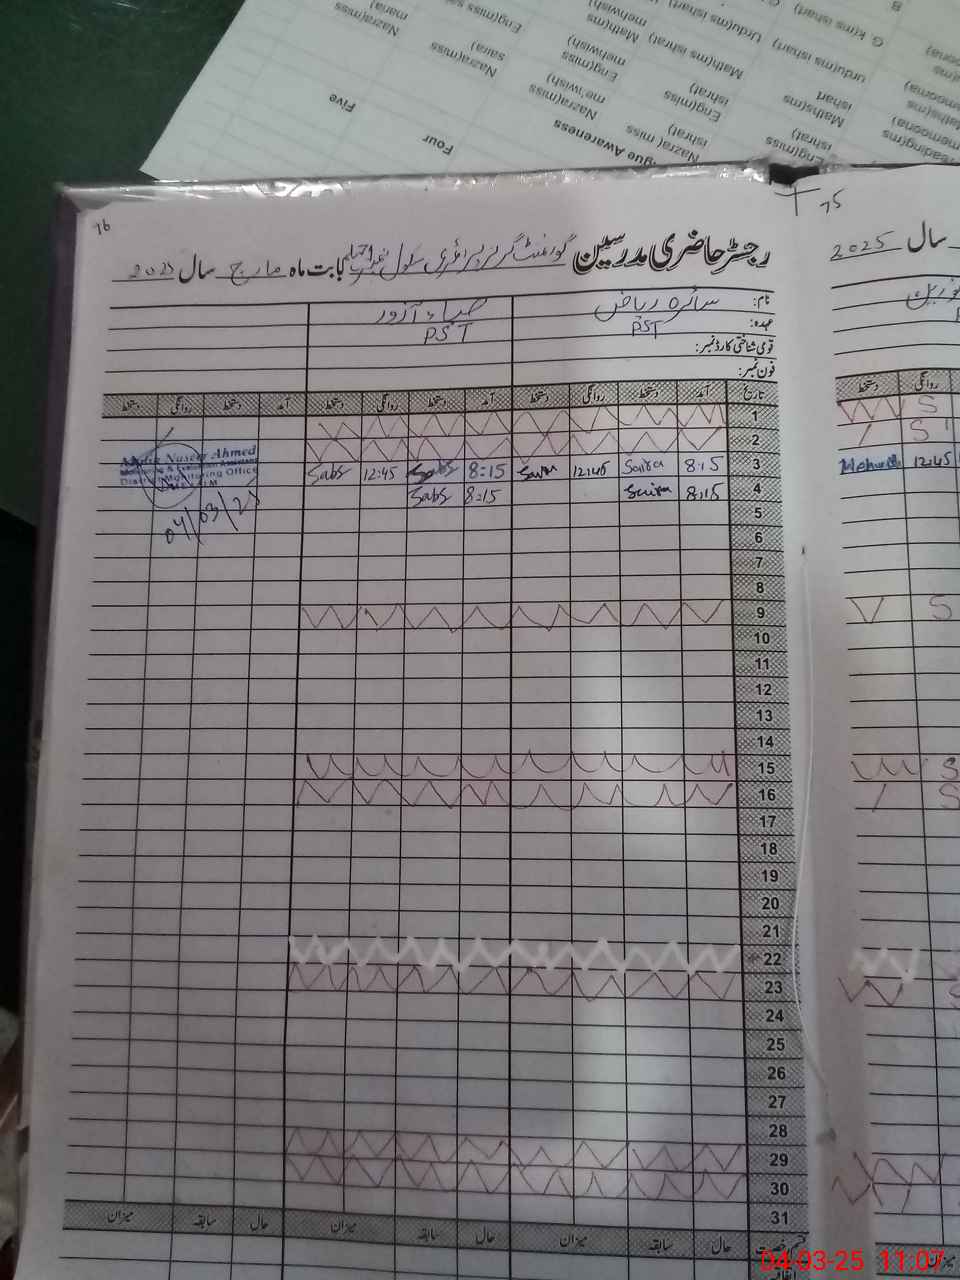 Five
Four
Nazra(miss
maria)
Nazra(miss
saira)
Eng(miss
mehwish)
Math(ms
mehwish)
Eng(miss
me'wish)
Nazra(miss
gue Awareness
Urdu(ms
Math(ms ishrat)
Eng(miss
ishrat)
Nazra( miss
ishrat)
G k(ms ishart)
urdu(ms ishart)
Maths(ms
ishart
Eng(miss
ishrat)
B
76
75
رجسٹر حاضری مدرسین گورنمنٹ گرلز پرائمری سکول بابت ماہ مارچ سال 2025
سال 2025
نام: سائرہ ریاض صباء آزور
عہدہ: PST PST
قومی شناختی کارڈ نمبر:
فون نمبر:
تاریخ آمد دستخط روانگی دستخط آمد دستخط روانگی دستخط آمد دستخط روانگی دستخط
روانگی دستخط
1
S
2
S
3 8:15 Saira 12:45 Saira 8:15 Saba 12:45 Saba
12:45 Mehwish
4 8:15 Saira 8:15 Saba
Naseer Ahmed
District Monitoring Office
04/03/25
5
6
7
8
9
S
10
11
12
13
14
15
S
16
S
17
18
19
20
21
22
23
24
25
26
27
28
29
30
31
حال سابقہ میزان حال سابقہ میزان حال سابقہ میزان
میزان
04-03-25 11:07